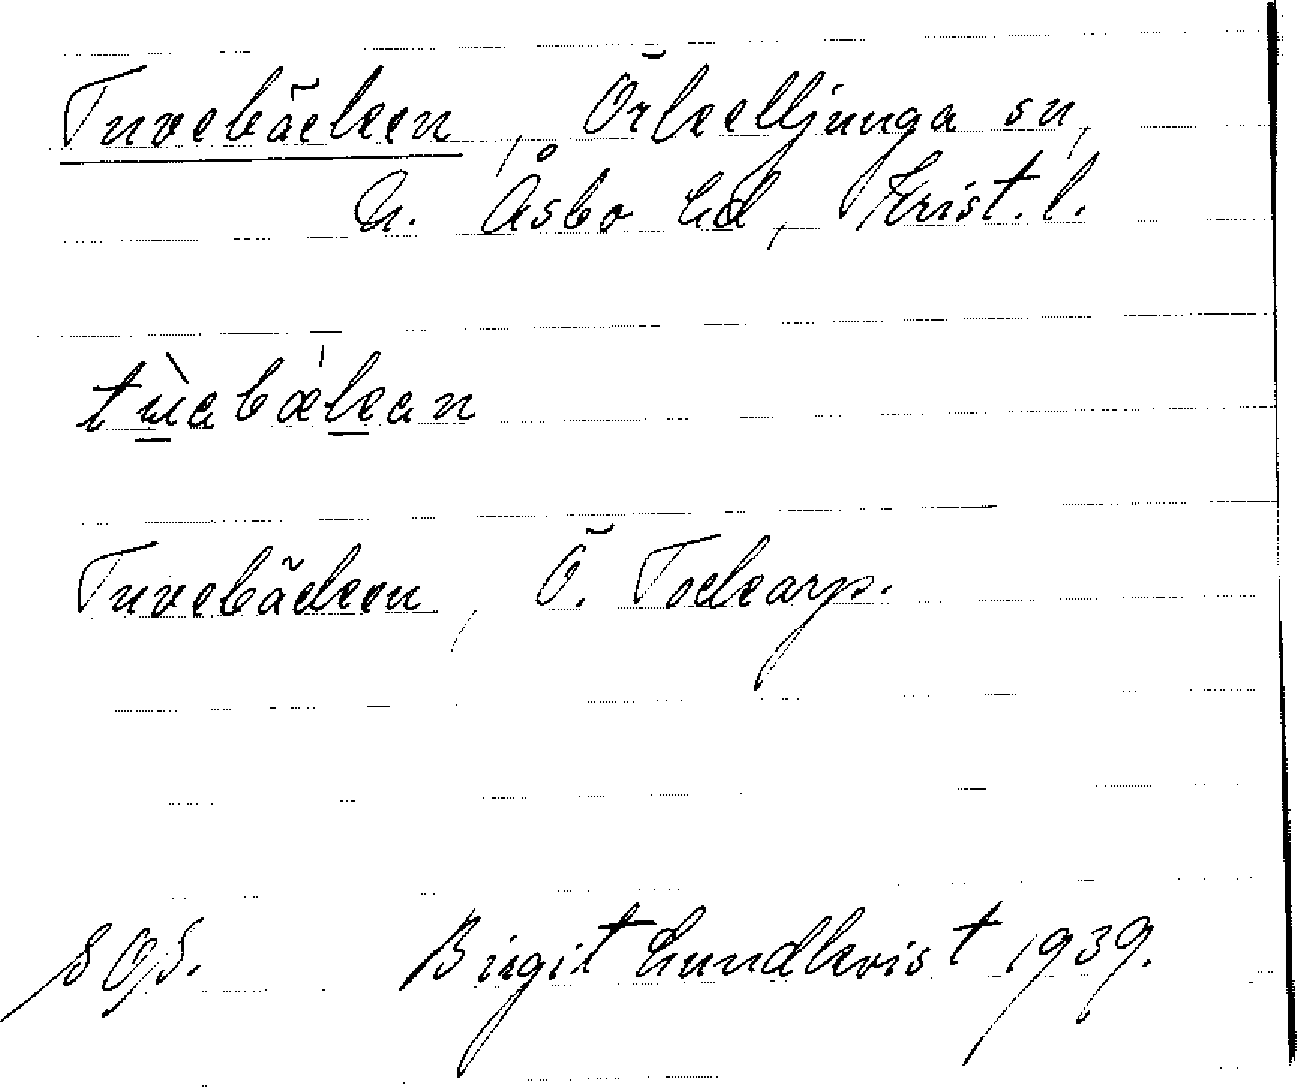 Tuvebäcken, Örkelljunga sn,
N. Åsbo hd, Krist. l.
tùebækan
Tuvebäcken, Ö. Tockarp.
SOS. Birgit Lundkvist 1939.